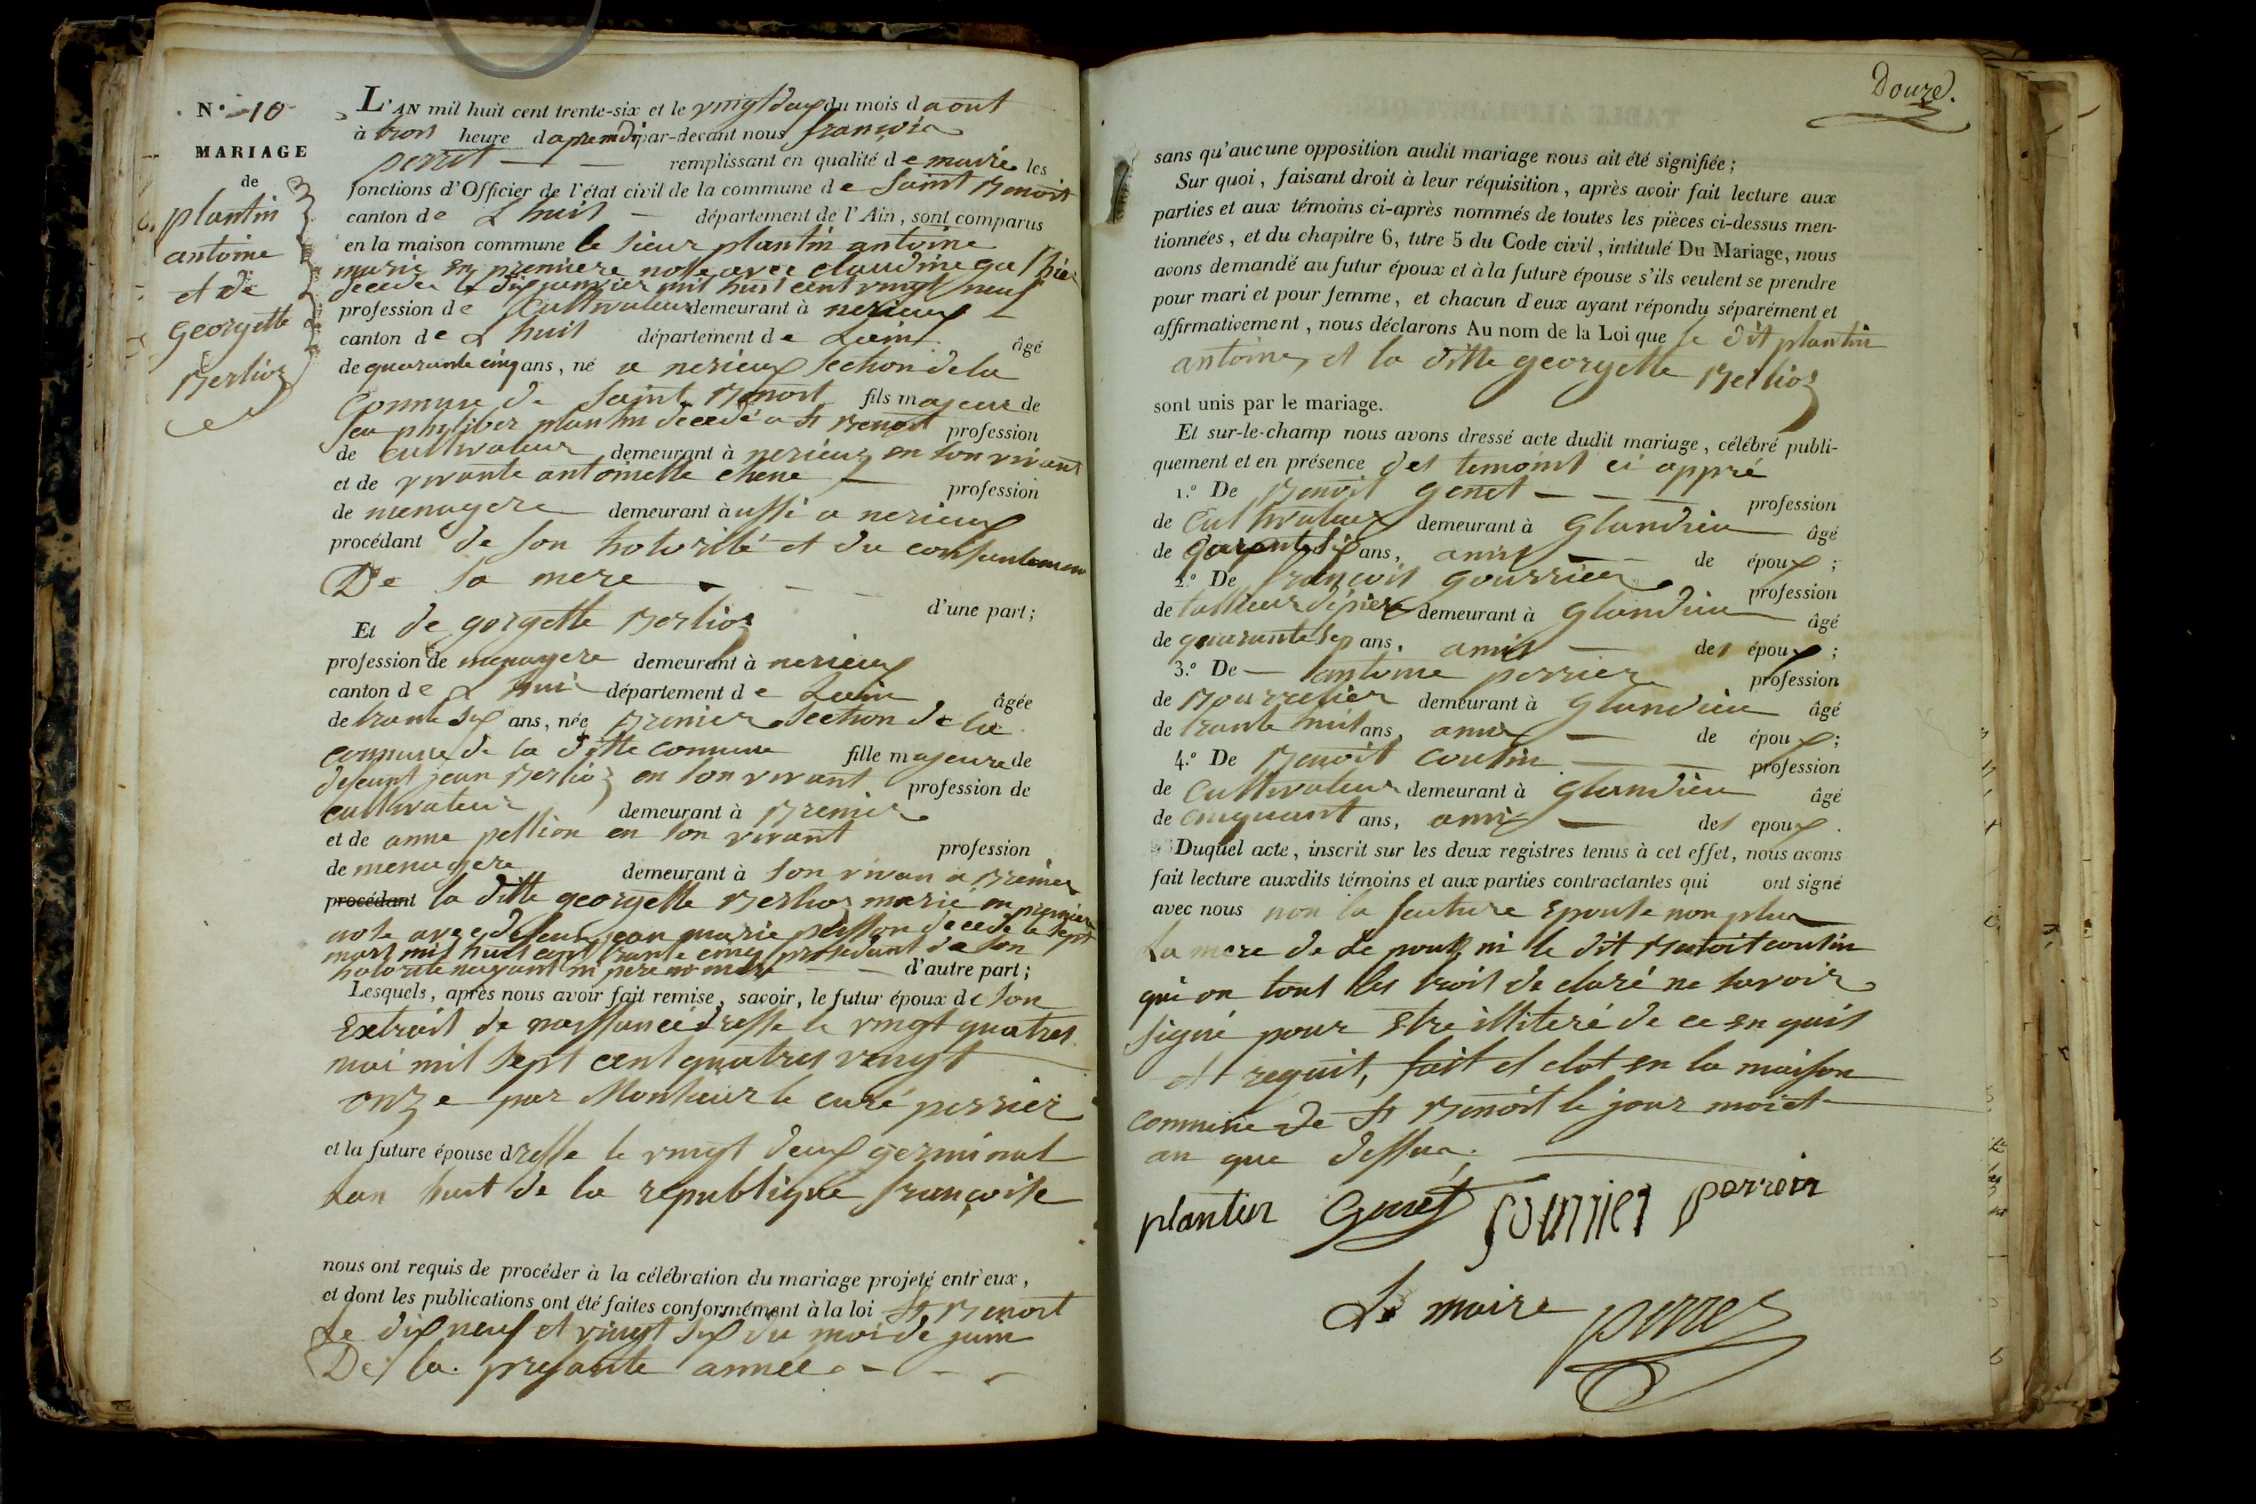 N.° 10
MARIAGE
de
plantin
antoine
et de
georgette
Berlioz
L'AN mil huit cent trente-six et le vingt deux du mois d aout
à trois heure d apremidi par-devant nous françois
perret remplissant en qualité de maire les
fonctions d'Officier de l'état civil de la commune de saint Benoit
canton de L huis département de l'Ain, sont comparus
en la maison commune le sieur plantin antoine
marie en premiere nosse avec claudine
decedee le dix janvier mil huit cent vingt neuf
profession de Cultivateur demeurant à nerieux
canton de L huis département de Lain âgé
de quarante cinq ans, né a nerieux section de la
Commune de saint Benoit fils majeur de
feu phylibert plantin decedé a st Benoit profession
de Cultivateur demeurant à nerieux en son vivant
et de vivante antoinette chene profession
de menagere demeurant à ussi a nerieux
procédant de son hotorité et du consentemen
De sa mere
d'une part;
Et de gorgette Berlioz
profession de menagere demeurant à nerieux
canton de L huis département de Lain âgée
de trante six ans, née Bremier section de la
commune de la ditte comune fille majeure de
defeunt jean Berlioz en son vivant profession de
cultivateur demeurant à Bremier
et de anne pellion en son vivant profession
de menagere demeurant à son vivan a Bremier
procédant la ditte georgette Berlioz marié en premier
nose avec defeunt jean marie decede le sept
mars mil huit cent trante cinq prosedant de son
hotorité nayant ni pere ni mere d'autre part;
Lesquels, après nous avoir fait remise, savoir, le futur époux de son
Extrait de naissance dresse le vingt quatres
mai mil sept cent quatres vingt
onze par Monsieur le curé perrier
et la future épouse dresse le vingt deux germinal
lan huit de la republique françoise
nous ont requis de procéder à la célébration du mariage projeté entr'eux,
et dont les publications ont été faites conformément à la loi st Benoit
Le dix neuf et vingt six du moi de juin
De la presante annee
Douze.
sans qu'aucune opposition audit mariage nous ait été signifiée;
Sur quoi, faisant droit à leur réquisition, après avoir fait lecture aux
parties et aux témoins ci-après nommés de toutes les pièces ci-dessus men-
tionnées, et du chapitre 6, titre 5 du Code civil, intitulé Du Mariage, nous
avons demandé au futur époux et à la future épouse s'ils veulent se prendre
pour mari et pour femme, et chacun d'eux ayant répondu séparément et
affirmativement, nous déclarons Au nom de la Loi que le dit plantin
antoine, et la ditte georgette Berlioz
sont unis par le mariage.
Et sur-le-champ nous avons dressé acte dudit mariage, célébré publi-
quement et en présence des temoins ci appré
1.° De Benoit genet profession
de Cultivateur demeurant à Glandieu âgé
de ans, amis de époux;
2.° De françois gourrier profession
de tallieur de piere demeurant à Glandieu âgé
de quarante sep ans, amis des époux;
3.° De antoine perrier profession
de Bourrelier demeurant à Glandieu âgé
de trante huit ans, amis de époux;
4.° De Benoit coutin profession
de Cultivateur demeurant à Glandieu âgé
de cinquant ans, amis des epoux.
Duquel acte, inscrit sur les deux registres tenus à cet effet, nous avons
fait lecture auxdits témoins et aux parties contractantes qui ont signé
avec nous non la feuture Epouse non plus
La mere de Le poux, ni le dit Benoit coutin
qui on tous les trois de claré ne savoir
signé pour Etre illiteré de ce en quis
et requit, fait et clot en la maison
commune de st Benoit le jour moi et
an que dessus.
plantin Genet perrier
Le maire perret